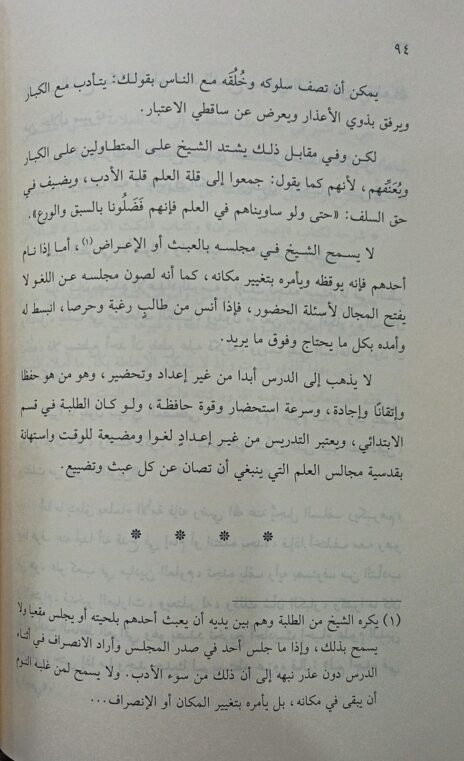 ٩٤
يمكن أن تصف سلوكه وخُلُقَه مع الناس بقولك: يتأدب مع الكبار
ويرفق بذوي الأعذار ويعرض عن ساقطي الاعتبار.
لكن وفي مقابل ذلك يشتد الشيخ على المتطاولين على الكبار
ويُعَنِّفهم، لأنهم كما يقول: جمعوا إلى قلة العلم قلة الأدب، ويضيف في
حق السلف: «حتى ولو ساويناهم في العلم فإنهم فَضَلُونا بالسبق والورع».
لا يسمح الشيخ في مجلسه بالعبث أو الإعراض(١)، أما إذا نام
أحدهم فإنه يوقظه ويأمره بتغيير مكانه، كما أنه لصون مجلسه عن اللغو لا
يفتح المجال لأسئلة الحضور، فإذا أنس من طالبٍ رغبة وحرصا، انبسط له
وأمده بكل ما يحتاج وفوق ما يريد.
لا يذهب إلى الدرس أبدا من غير إعداد وتحضير، وهو من هو حفظا
وإتقانًا وإجادة، وسرعة استحضار وقوة حافظة، ولو كان الطلبة في قسم
الابتدائي، ويعتبر التدريس من غير إعدادٍ لغوا ومضيعة للوقت واستهانة
بقدسية مجالس العلم التي ينبغي أن تصان عن كل عبث وتضييع.
* * * *
(١) يكره الشيخ من الطلبة وهم بين يديه أن يعبث أحدهم بلحيته أو يجلس مقعيا ولا
يسمح بذلك، وإذا ما جلس أحد في صدر المجلس وأراد الانصراف في أثناء
الدرس دون عذر نبهه إلى أن ذلك من سوء الأدب. ولا يسمح لمن غلبه النوم
أن يبقى في مكانه، بل يأمره بتغيير المكان أو الإنصراف...